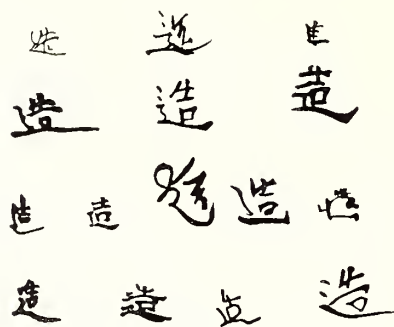 造 造 造
造 造 造
造 造 造 造 造
造 造 造 造